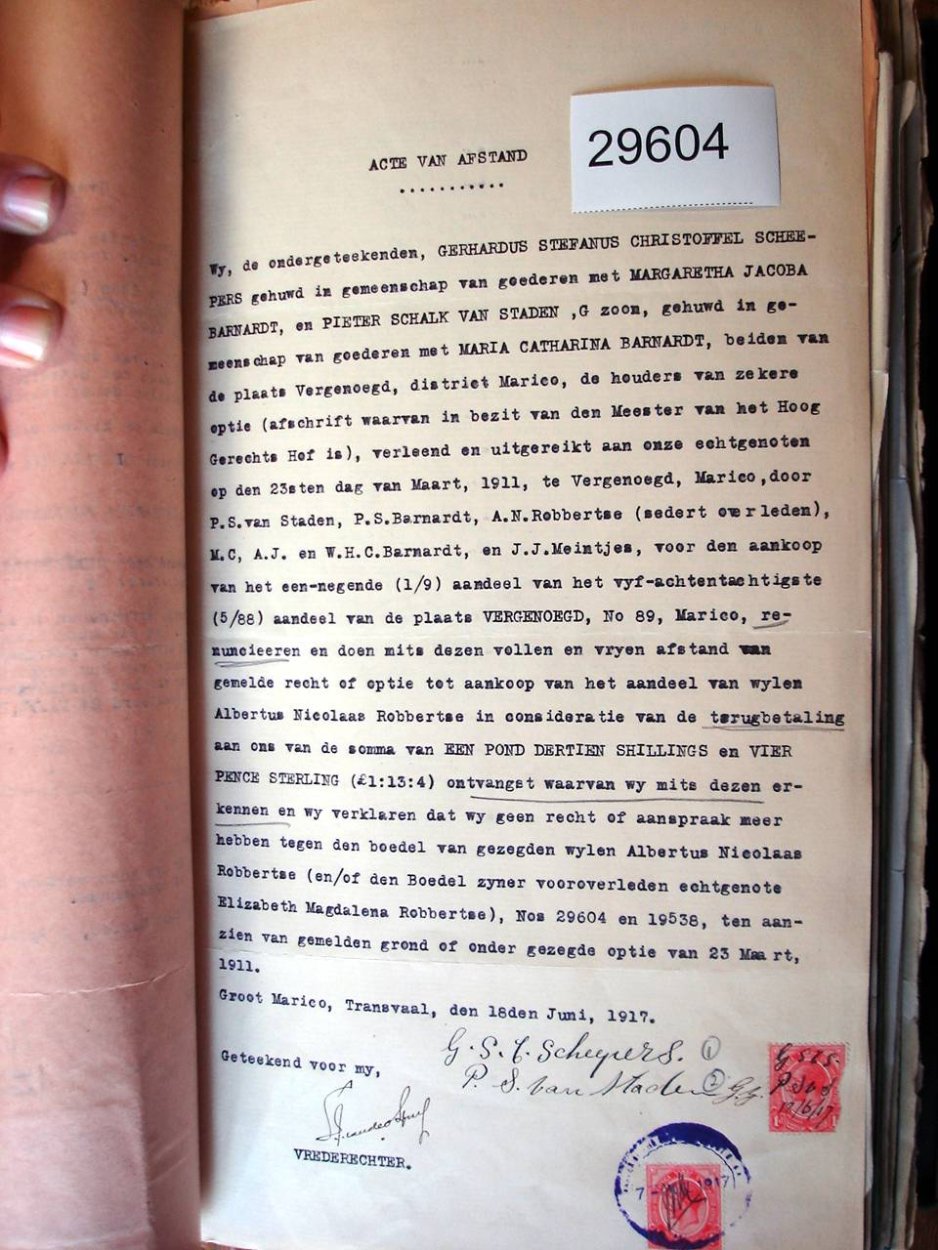 29604
ACTE VAN AFSTAND
...........
Wy, de ondergeteekenden, GERHARDUS STEFANUS CHRISTOFFEL SCHEE-
PERS gehuwd in gemeenschap van goederen met MARGARETHA JACOBA
BARNARDT, en PIETER SCHALK VAN STADEN ,G zoon, gehuwd in ge-
meenschap van goederen met MARIA CATHARINA BARNARDT, beiden van
de plaats Vergenoegd, district Marico, de houders van zekere
optie (afschrift waarvan in bezit van den Meester van het Hoog
Gerechts Hof is), verleend en uitgereikt aan onze echtgenoten
op den 23sten dag van Maart, 1911, te Vergenoegd, Marico,door
P.S.van Staden, P.S.Barnardt, A.N.Robbertse (sedert overleden),
M.C, A.J. en W.H.C.Barnardt, en J.J.Meintjes, voor den aankoop
van het een-negende (1/9) aandeel van het vyf-achtentachtigste
(5/88) aandeel van de plaats VERGENOEGD, No 89, Marico, re-
nuncieeren en doen mits dezen vollen en vryen afstand van
gemelde recht of optie tot aankoop van het aandeel van wylen
Albertus Nicolaas Robbertse in consideratie van de terugbetaling
aan ons van de somma van EEN POND DERTIEN SHILLINGS en VIER
PENCE STERLING (£1:13:4) ontvangst waarvan wy mits dezen er-
kennen en wy verklaren dat wy geen recht of aanspraak meer
hebben tegen den boedel van gezegden wylen Albertus Nicolaas
Robbertse (en/of den Boedel zyner vooroverleden echtgenote
Elizabeth Magdalena Robbertse), Nos 29604 en 19538, ten aan-
zien van gemelden grond of onder gezegde optie van 23 Maart,
1911.
Groot Marico, Transvaal, den 18den Juni, 1917.
G. S. C. Scheepers. 1
Geteekend voor my,
P. S. van Staden 2 G.z.
G S C S
17/6/17
VREDERECHTER.
7 1917